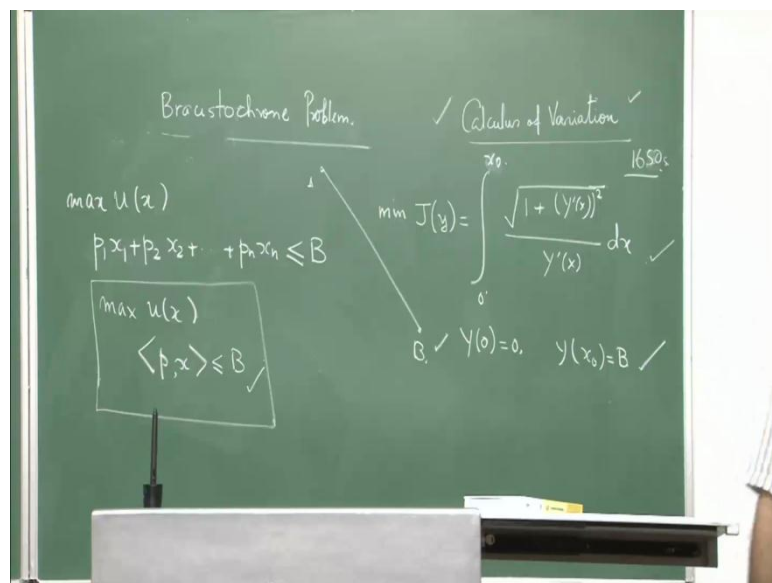 Bracustochrone Problem.
✓ Calculus of Variation ✓
1650s
max U(x)
p₁x₁+p₂x₂+ ··· +pₙxₙ ≤ B
max u(x)
<p,x> ≤ B ✓
A
B.
min J(y) = ∫₀^{x₀.} √(1 + (y'(x))²) / y'(x) dx ✓
✓ y(0)=0, y(x₀)=B ✓